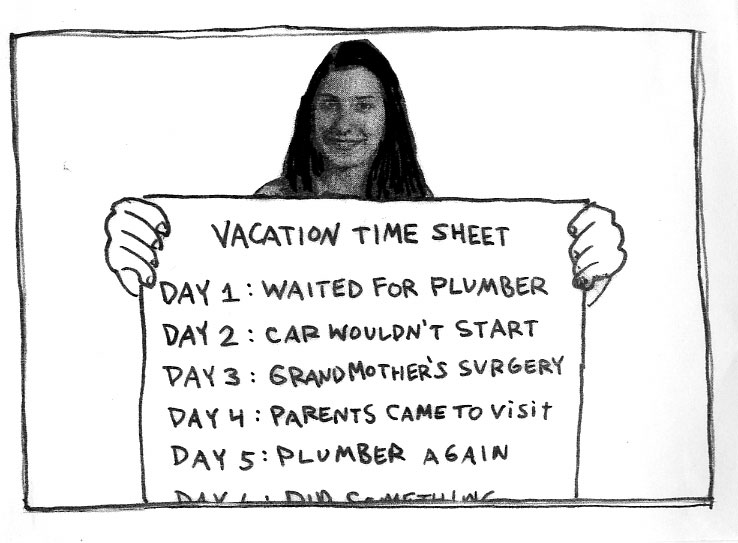 VACATION TIME SHEET
DAY 1: WAITED FOR PLUMBER
DAY 2: CAR WOULDN'T START
DAY 3: GRANDMOTHER'S SURGERY
DAY 4: PARENTS CAME TO Visit
DAY 5: PLUMBER AGAIN
DAY 6: DID SOMETHING